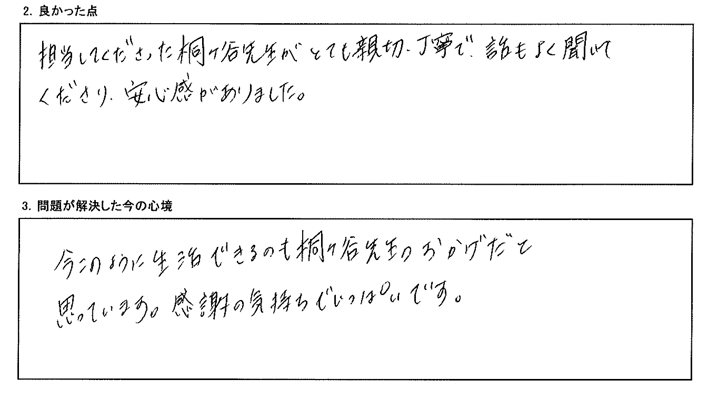 2. 良かった点
担当してくださった桐ヶ谷先生がとても親切、丁寧で、話もよく聞いて
くださり、安心感がありました。
3. 問題が解決した今の心境
今このように生活できるのも桐ヶ谷先生のおかげだと
思っています。感謝の気持ちでいっぱいです。